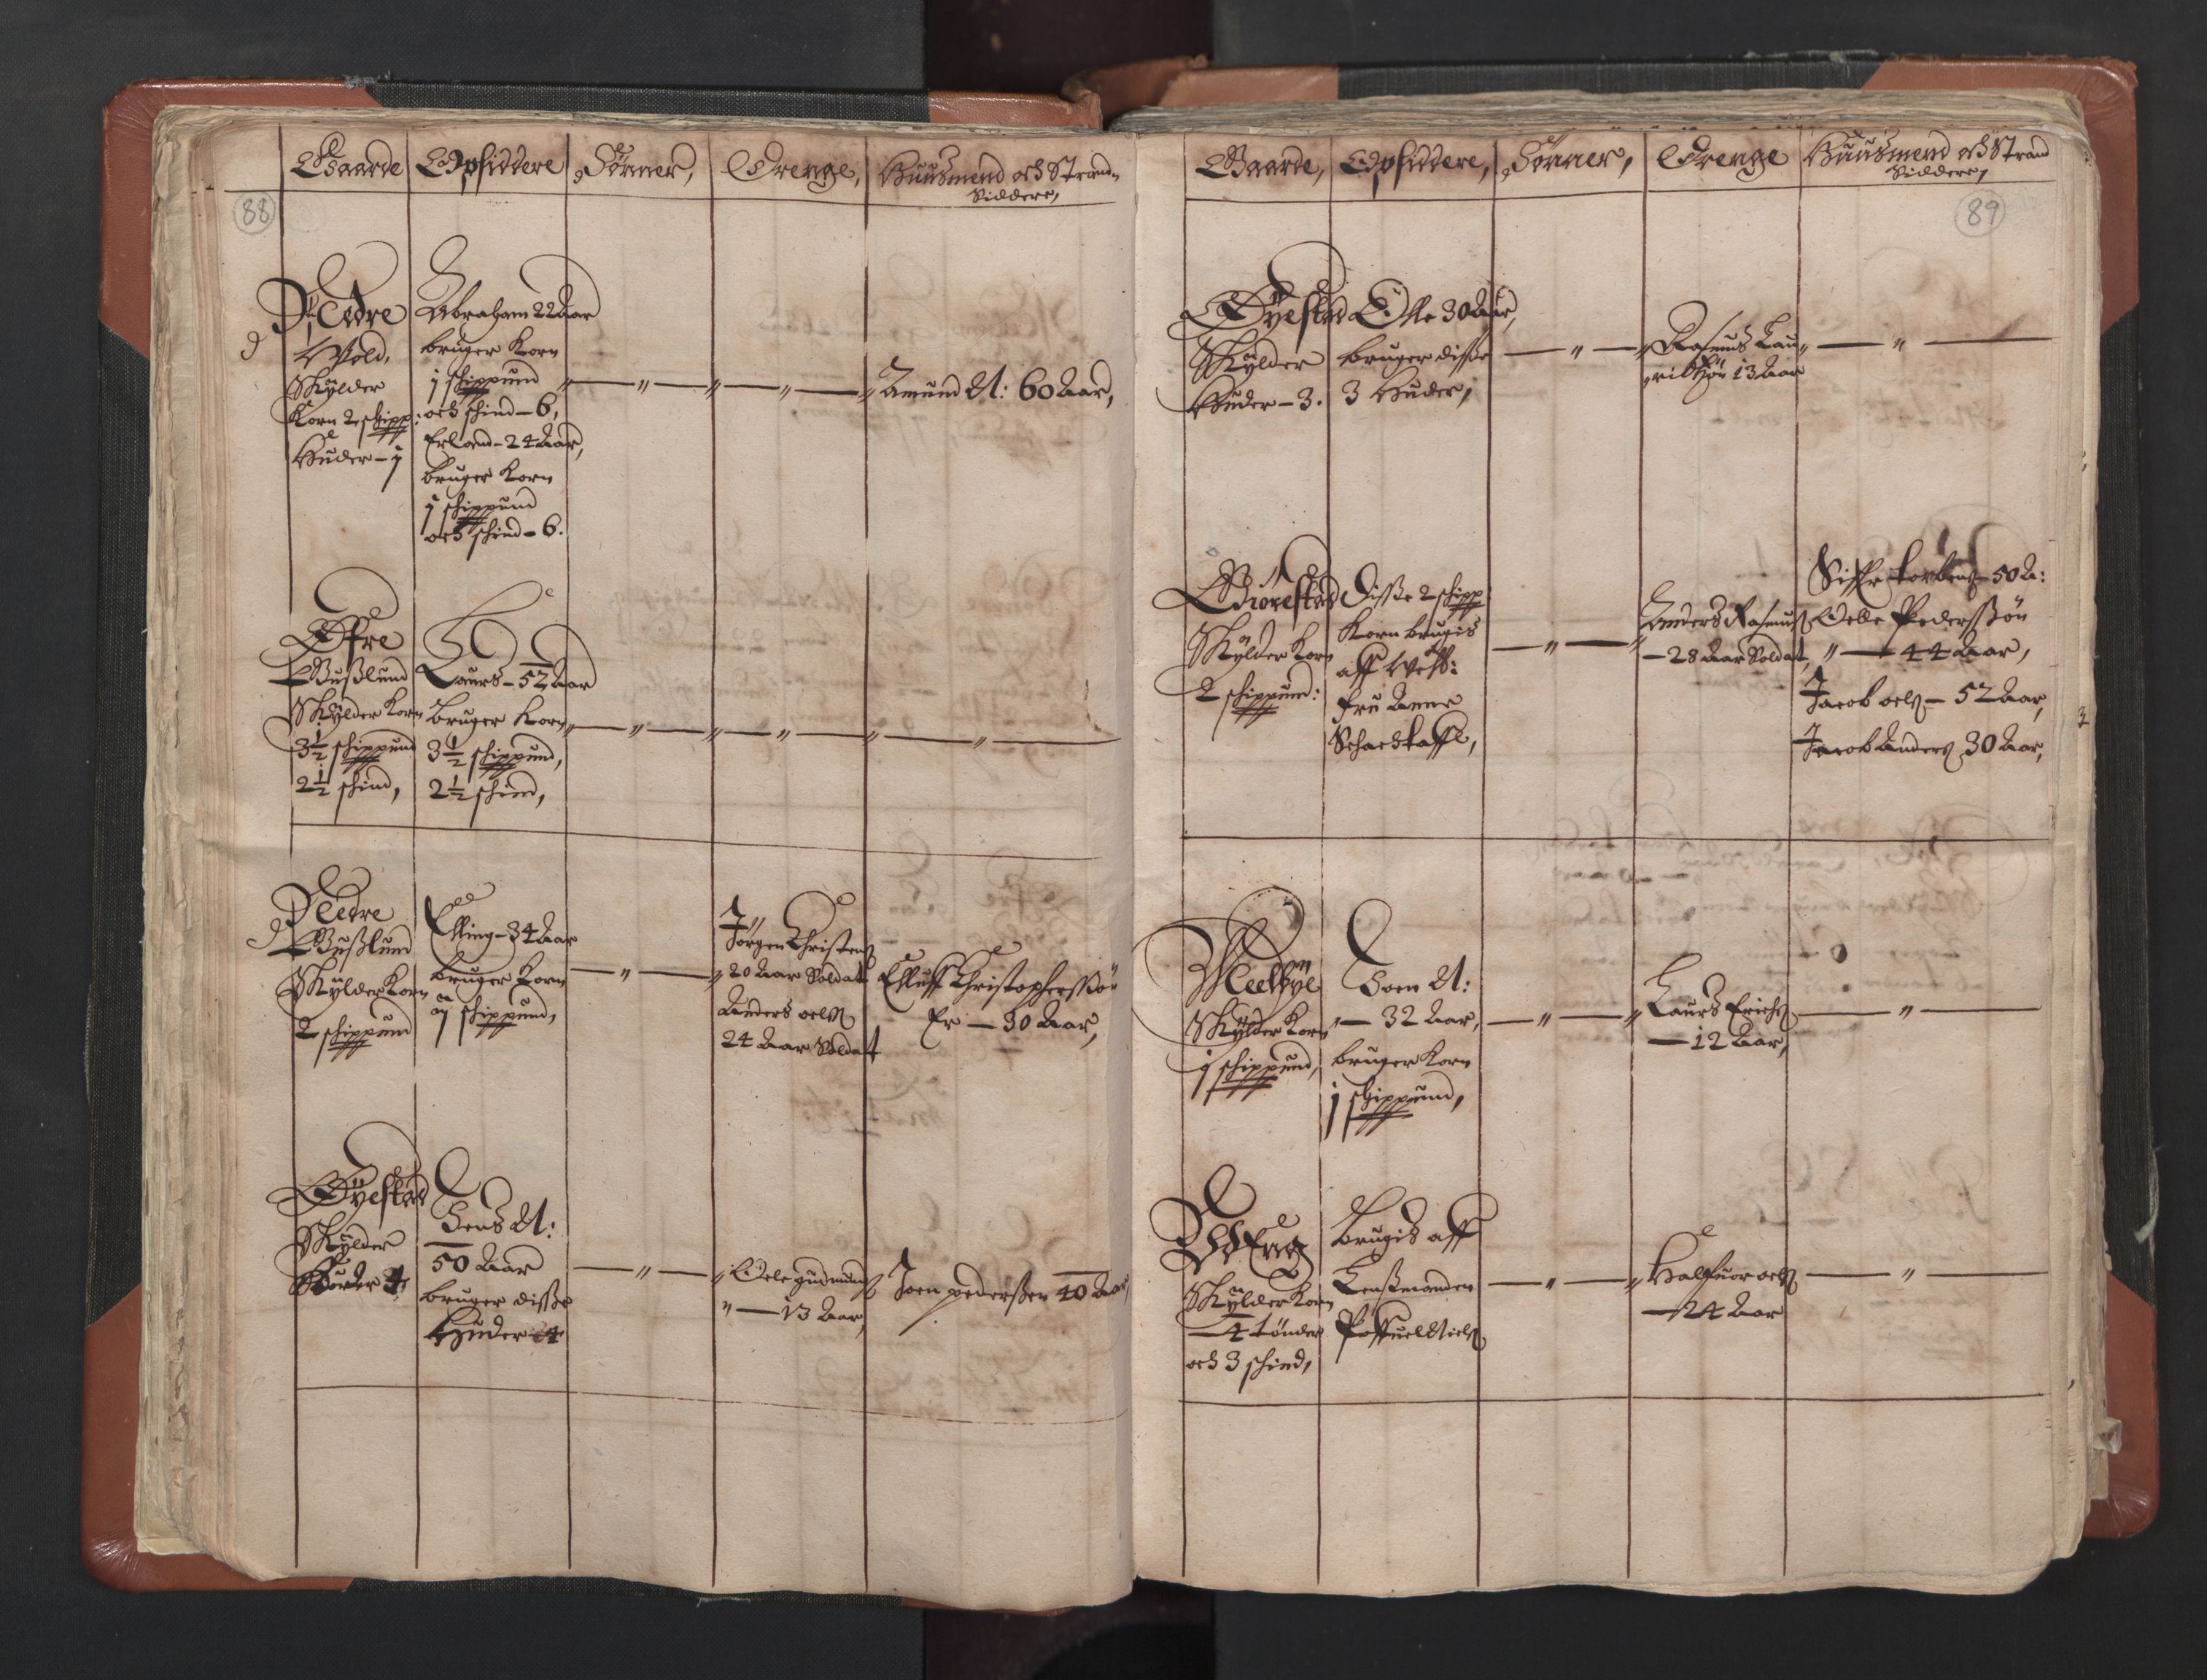 88
Gaarde
Opsiddere
Sønner,
Drenge,
Huusmend och Strand-
Siddere,
Nedre
Vold,
Skylder
Korn 2 schipp:
Huder - j
Abraham 22 Aar
bruger Korn
j schippund
och schind - 6,
Erland - 24 Aar,
bruger Korn
j schippund
och schind - 6.
Amund N: 60 Aar,
Øfre
Bußlund
Skylder Korn
3½ schippund
2½ schind,
Laurs - 52 Aar
bruger Korn
3½ schippund,
2½ schind,
Nedre
Bußlund
Skylder Korn
2 schippund
Elling - 34 Aar
bruger Korn
schippund,
Jörgen Christens
20 Aar Soldatt
Anders oelß
24 Aar Soldatt
Elluff Christopherssøn
Er - 30 Aar,
Øyestad
Skylder
Huder 4
Jens N:
50 Aar
bruger disse
Huder 4
Oele gudmunds
13 Aar,
Joen pederßen 40 Aar,
89
Gaarde,
Opsiddere,
Sønner,
Drenge
Huusmend och Strand
Siddere,
Øyestad
Skylder
Huder - 3.
Olle 30 Aar,
bruger disse
3 Huder,
Rasmus Lau-
ridtzøn 13 Aar
Biørestad
Skylder Korn
2 schippund:
Disse 2 schipp
Korn brugis
aff Welb:
fru Anne
Schachtaffl,
Anders Rasmusß
- 28 Aar Soldat,
50 A:
Oelle Pederssøn
" - 44 Aar,
Jacob oelß - 52 Aar,
Jacob Anders 30 Aar,
Meelbye
Skylder Korn
j schippund,
Soen N:
- 32 Aar,
bruger Korn
j schippund,
Laurs Erichs
- 12 Aar,
Skylder Korn
- 4 tønder
och 3 schind,
Brugis aff
Lensmanden
Poffuel Nielß
Halfuor oelß
- 24 Aar